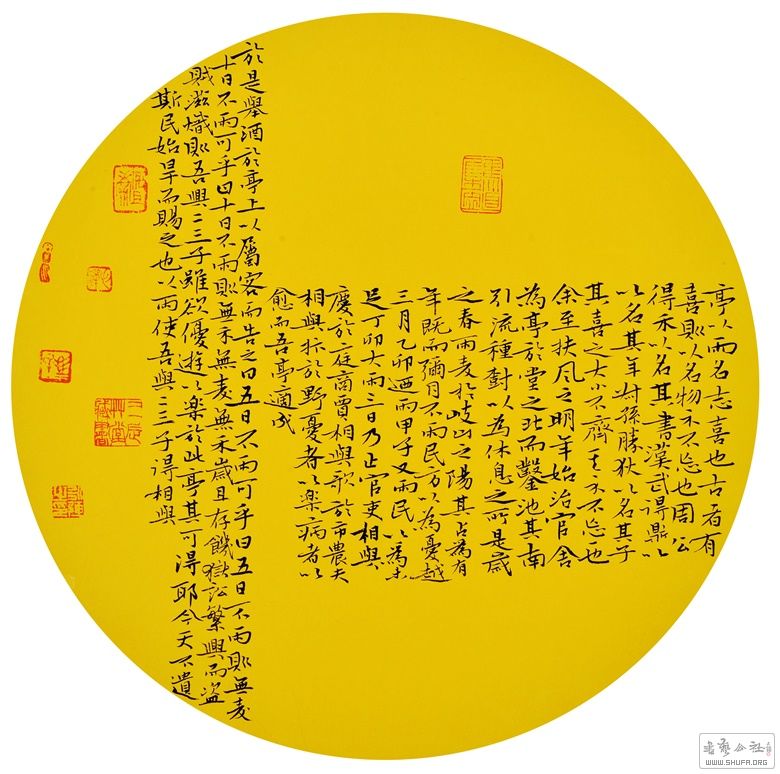 亭以雨名志喜也古者有
喜則以名物示不忘也周公
得禾以名其書漢武得鼎以
以名其年叔孫勝狄以名其子
其喜之大小不齊其示不忘也
余至扶風之明年始治官舍
為亭於堂之北而鑿池其南
引流種樹以為休息之所是歲
之春雨麦於岐山之陽其占為有
年既而彌月不雨民方以為憂越
三月乙卯迺雨甲子又雨民以為未
足丁卯大雨三日乃止官吏相與
慶於庭商賈相與歌於市農夫
相與抃於野憂者以樂病者以
愈而吾亭適成
於是舉酒於亭上以屬客而告之曰五日不雨可乎曰五日不雨則無麦
十日不雨可乎曰十日不雨則無禾無麦無禾歲且存饑獄訟繁興而盜
賊滋熾則吾與二三子雖欲優遊以樂於此亭其可得耶今天不遺
斯民始旱而賜之也以雨使吾與二三子得相與
書藝公社
WWW.SHUFA.ORG